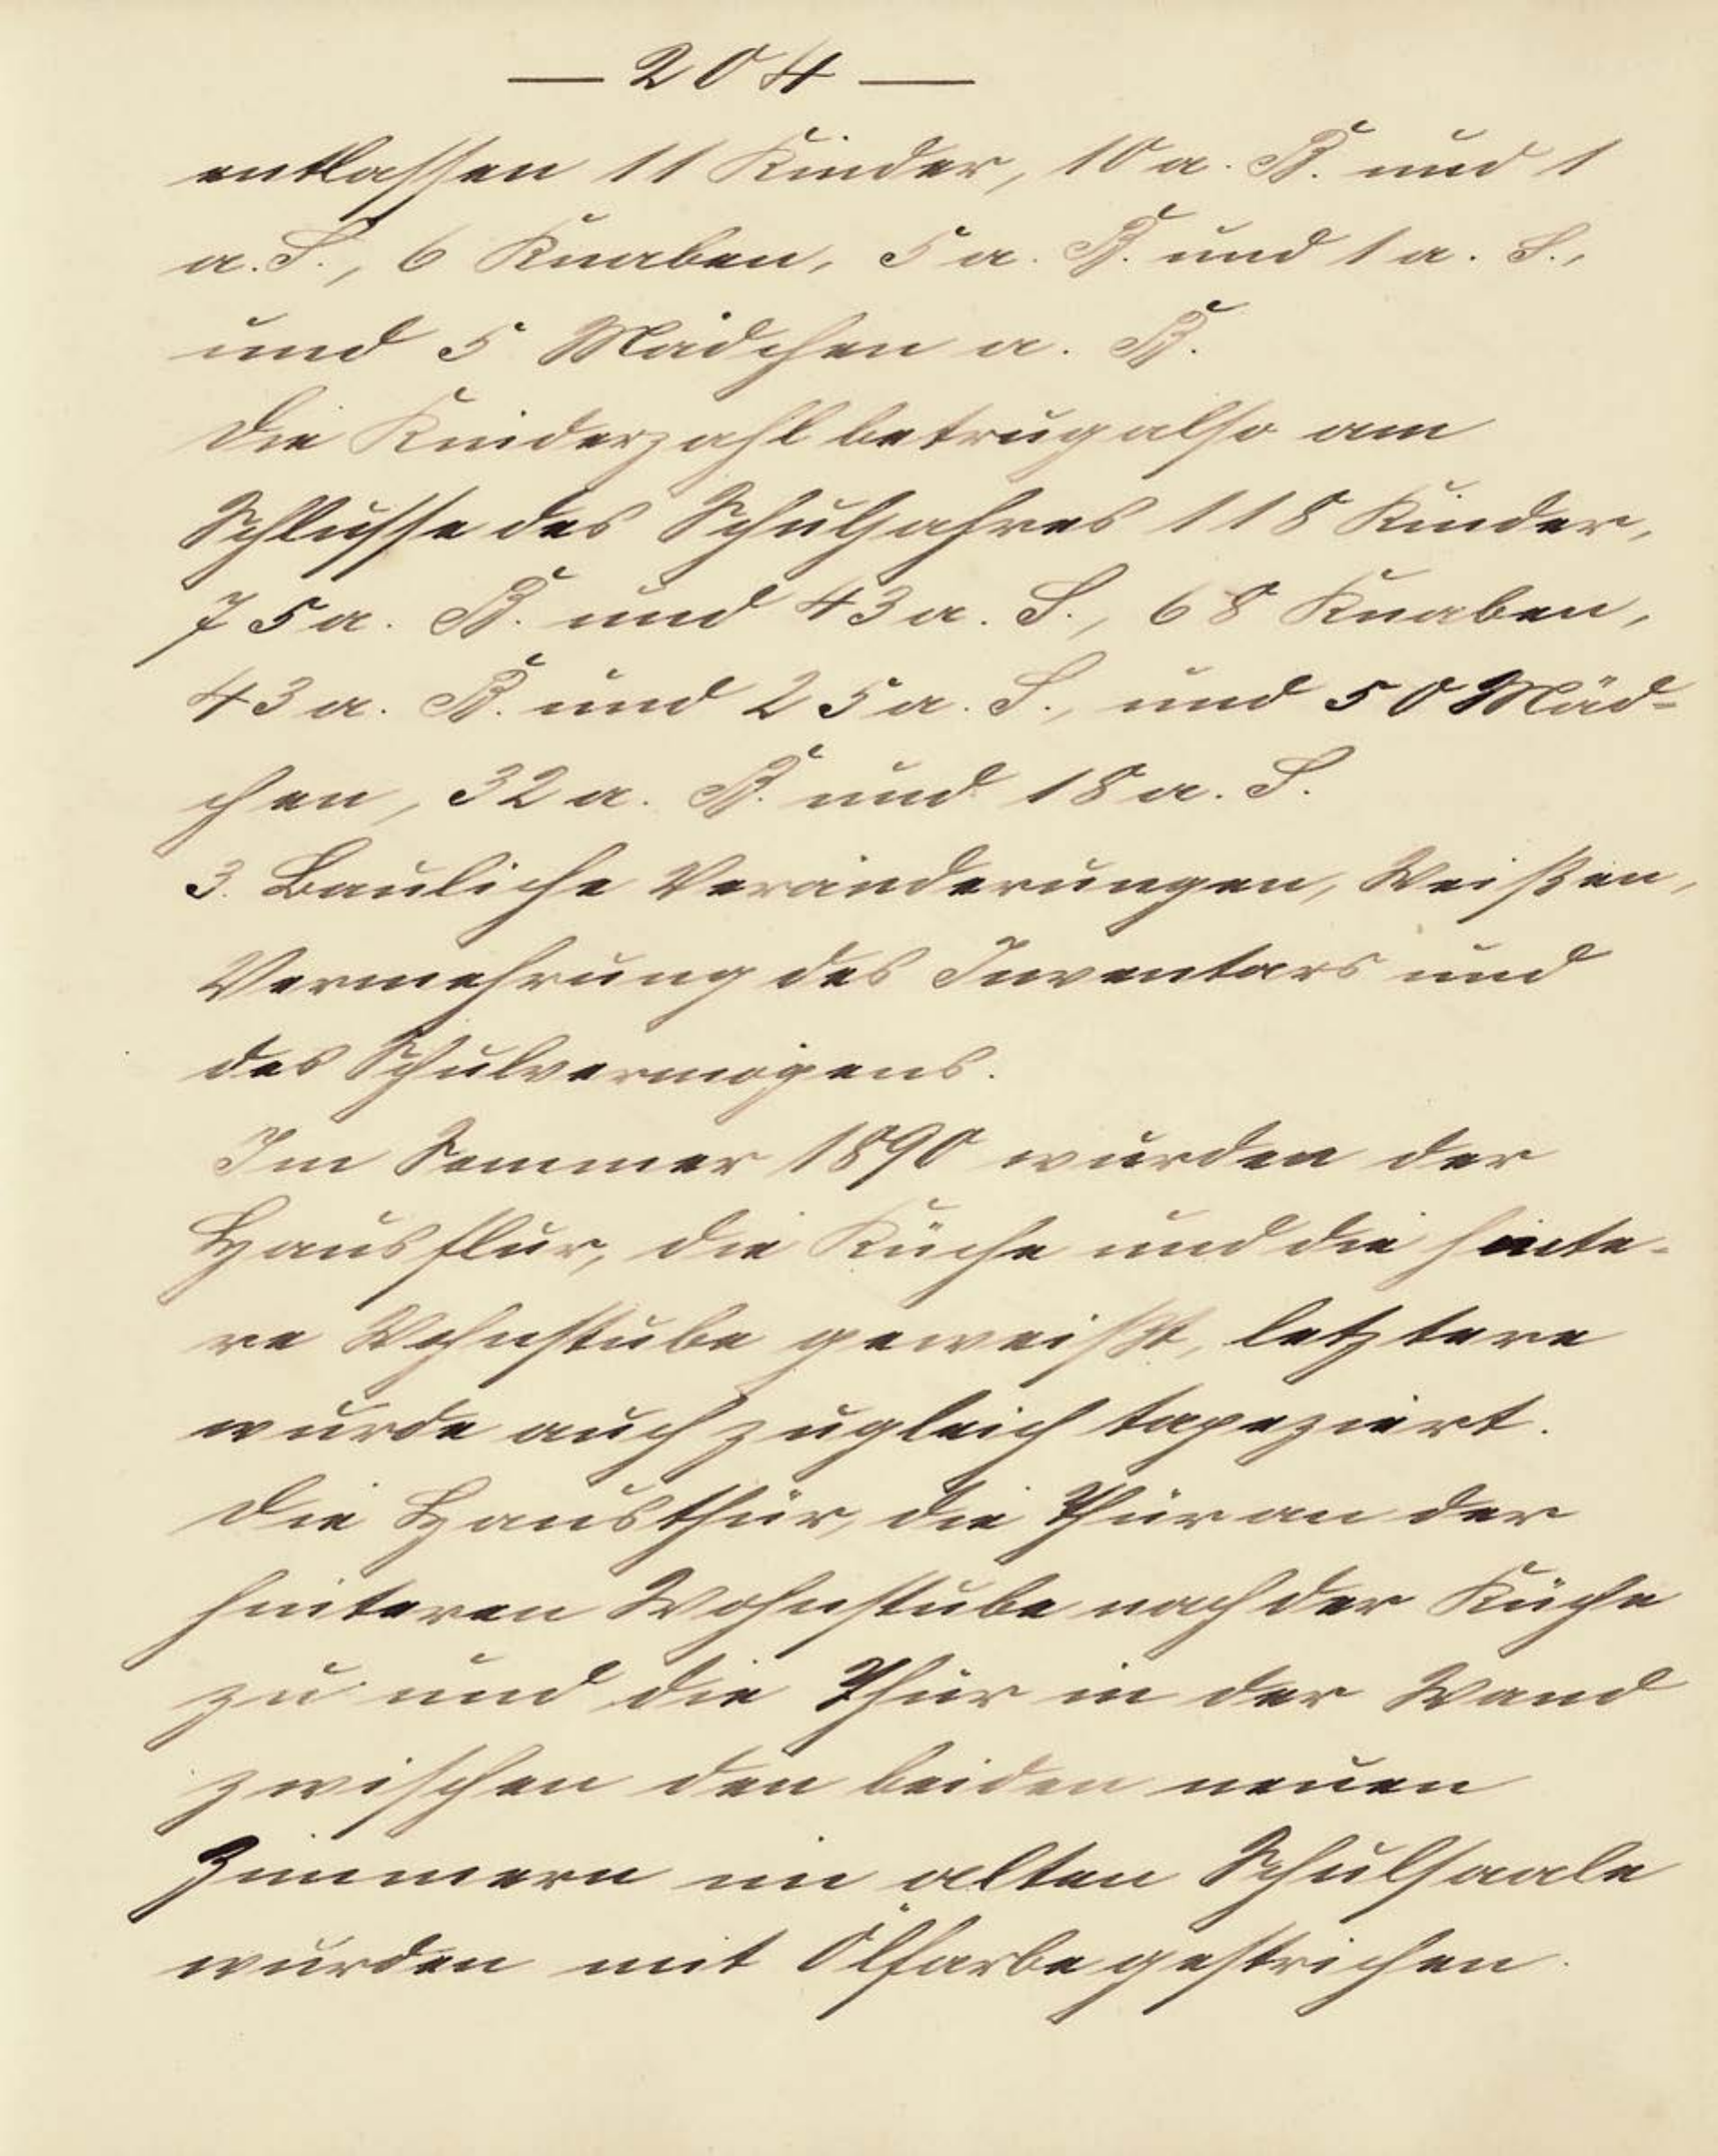 — 204 —
entlassen 11 Kinder, 10 a. K. und 1
a. S., 6 Knaben, 5 a. K. und 1 a. S.,
und 5 Mädchen a. K.
Die Kinderzahl betrug also am
Schlusse des Schuljahres 118 Kinder,
75 a. K. und 43 a. S., 68 Knaben,
43 a. K. und 25 a. S., und 50 Mäd-
chen, 32 a. K. und 18 a. S.
3. Bauliche Veränderungen, Weißen,
Vermehrung des Inventars und
des Schulvermögens.
Im Sommer 1890 wurden der
Hausflur, die Küche und die hinte-
re Wohnstube geweißt, letztere
wurde auch zugleich tapeziert.
Die Hausthür, die Thür an der
hinteren Wohnstube nach der Küche
zu und die Thür in der Wand
zwischen den beiden neuen
Zimmern im alten Schulsaale
wurden mit Ölfarbe gestrichen.